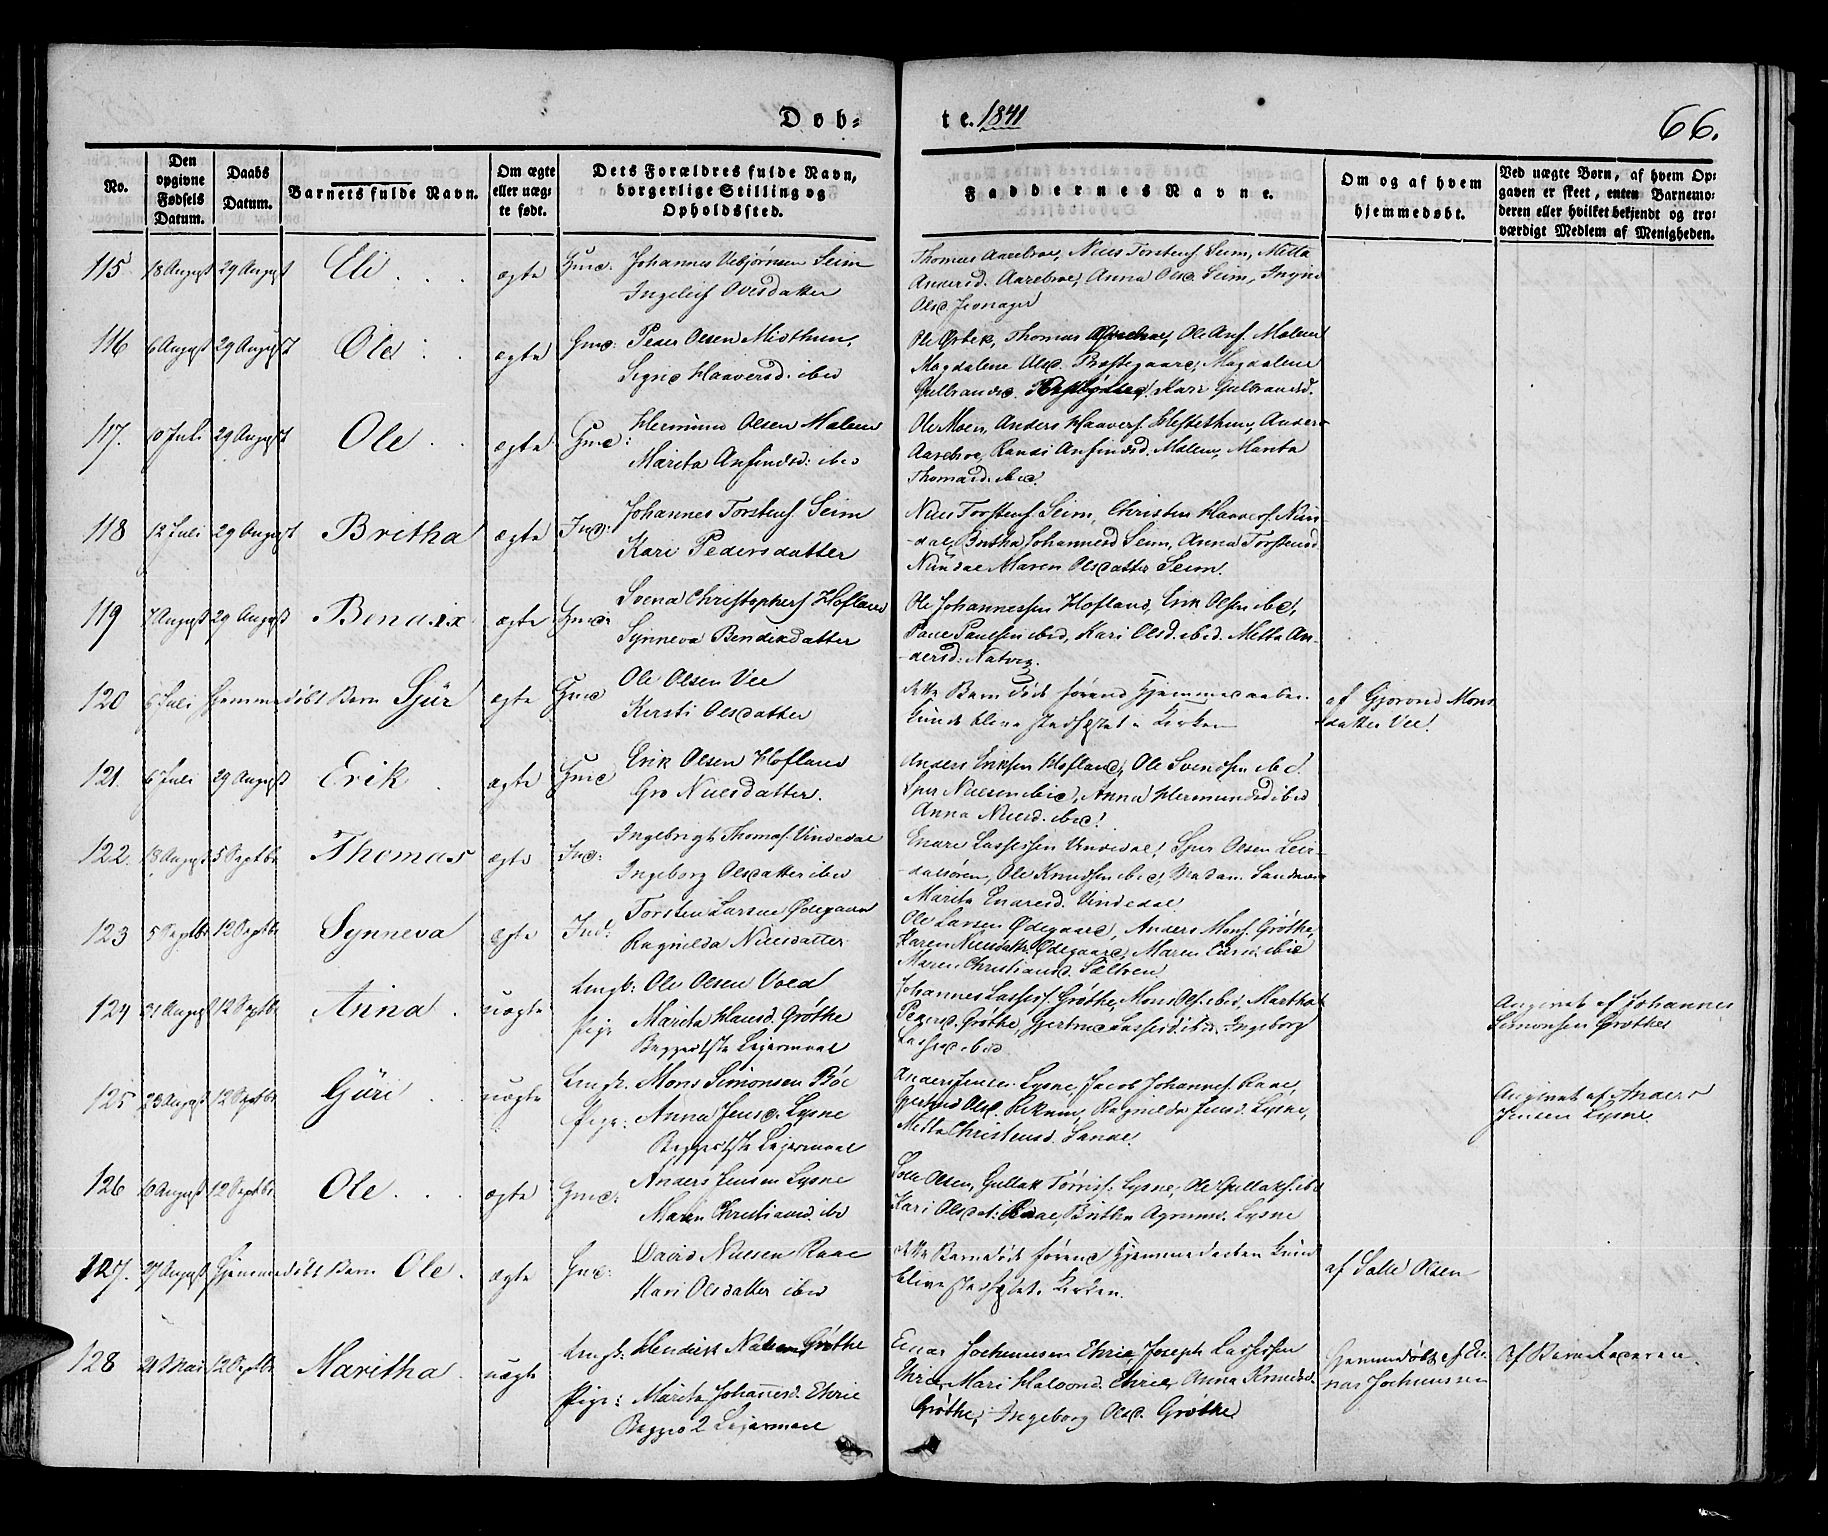 Døb-
te. 1841
66.
No.
Den opgivne Fødsels Datum.
Daabs Datum.
Barnets fulde Navn.
Om ægte eller uægte født.
Dets Forældres fulde Navn, borgerlige Stilling og Opholdssted.
Faddernes Navne.
Om og af hvem hjemmedøbt.
Ved uægte Børn, af hvem Opgaven er skeet, enten Barnemoderen eller hvilket bekjendt og troværdigt Medlem af Menigheden.
115 18 August 29 August Eli ægte Gmd: Johannes Vebjørnsen Seim
Ingeleif Olsdatter
Thomas Aarebroe, Niels Torstens. Seim, Metta
Andersd. Aarebroe, Anna Olsd. Seim, Ingier
Olsd.
116 6 August 29 August Ole ægte Gmd: Peder Olsen Midthun,
Signe Haaversd. ibid
Ole Thomas Ole Anf. Malum
Magdalene Olsd. Præstegaard, Magdalene
Gulbrandsd. Kari Gulbrandsd.
117. 10 Juli 29 August Ole ægte Gmd: Hermund Olsen Malum
Marita Anfindsd: ibid
Ole Moen, Anders Haavers. Hestethun, Anders
Aarebroe, Randi Anfindsd. Malum, Marita
Thomasd. ibid.
118 12 Juli 29 August Britha ægte Ind: Johannes Torstens. Seim
Kari Pedersdatter
Niels Torstens. Seim, Christen Haavers. Nun-
dal, Britha Johannesd. Seim, Anna Torstensd.
Nundal Maren Olsdatter Seim.
119 7 August 29 August Bendix ægte Gmd: Svend Christophers. Hofland
Synneva Bendiksdatter
Ole Johannessen Hofland, Erik Olsen ibid,
Paul Paulsen ibid, Kari Olsd. ibid. Metta An-
dersd: Natvig.
120 6 Juli Hjemmedøbt Barn Sjur ægte Gmd Ole Olsen Vee
Kirsti Olsdatter
dette Barn døde førend Hjemmedaaben
kunde blive stadfæstet i Kirken
af Gjorond Mons-
datter Vee!
121. 6 Juli 29 August Erik ægte Gmd Erik Olsen Hofland
Gro Nielsdatter.
Anders Eriksen Hofland, Ole Svendsen ibid.
Sjur Nielsen ibid, Anna Hermundsd ibid
Anna Nielsd. ibid!
122. 18 August 5 Septbr Thomas ægte Ind: Ingebrigt Thomas. Vindedal
Ingeborg Olsdatter ibid
Enare Lassesen Vindedal, Sjur Olsen Leir-
dalsøren, Ole Knudsen ibid, Madam
Marita Enaresd. Vindedal
123 5 Septbr 12 Septbr Synneva ægte Ind: Torsten Larsen Ødegaard
Ragnilda Nielsdatter
Ole Larsen Ødegaard, Anders Mons. Grøthe,
Karen Nielsdatter Ødegaard, Maren Larsd. ibid
Maren Christiansd. Sæltven
124 31 August 12 Septbr Anna uægte Ungk: Ole Olsen Vold
Pige Marita Hansd. Grøthe
Begges 1ste Leiermaal
Johannes Lasses. Grøthe, Mons Ols. ibid, Martha
Pedersd. Grøthe, Gjertrud Lassesd. ibid, Ingeborg
Lassesd ibid
Angivet af Johannes
Simonsen Grøthe
125 23 August 12 Septbr Guri uægte Ungk. Mons Simonsen Bøe
Pige: Anna Jensd. Lysne
Begges 1ste Leiermaal
Anders Jensen Lysne, Jacob Johannes. Raae,
Gjertrud Olsd. Rikum, Ragnilda Jensd. Lysne,
Metta Christensd. Sande.
Angivet af Anders
Jensen Lysne.
126 6 August 12 Septbr Ole ægte Gmd: Anders Jensen Lysne
Maren Christiansd. ibid
Olsen, Gullak Tørris. Lysne, Ole Gullaks. ibid
Kari Olsdat: Raae, Britha Lysne
127. 27 August Hjemmedøbt Barn Ole. ægte Gmd: David Nielsen Raae
Kari Olsdatter ibid
dette Barn døde førend Hjemmedaaben kunde
blive stadfæstet i Kirken.
af Salle Olsen
128 21 Mai 12 Septbr Maritha uægte Ungk: Hendrik Nielsen Grøthe
Pige: Marita Johannesd. Ehrie
Begges 2 Leiermaal
Enar Jochumsen Ehrie, Joseph Lassesen
Ehrie, Mari Halvorsd. Ehrie, Anna Knudsd.
Grøthe, Ingeborg Olsd. Grøthe
Hjemmedøbt af Ei-
nar Jochumsen
Af Barnefaderen.